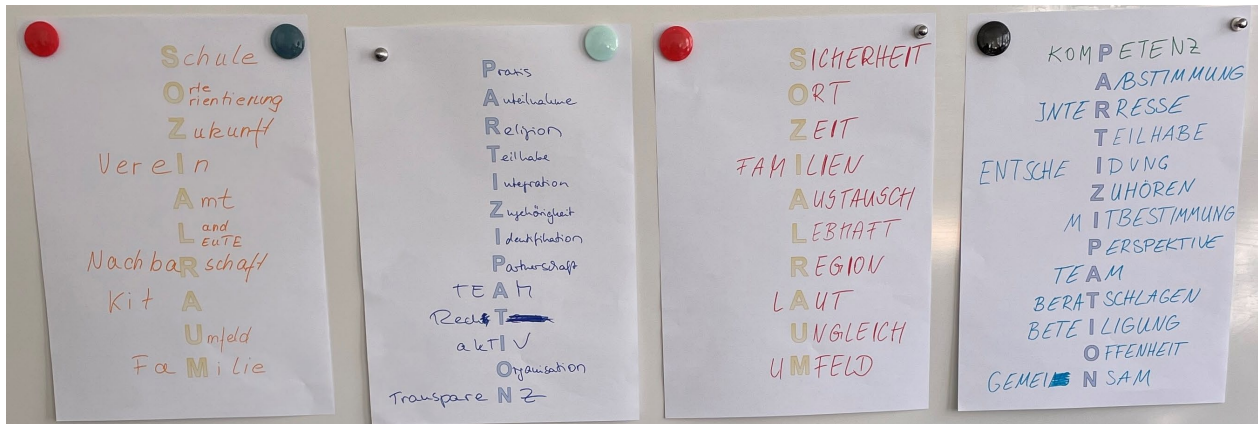 Schule
Orte
rientierung
Zukunft
VereIn
Amt
Land
EUTE
NachbaRschaft
KitA
Umfeld
FaMilie
Praxis
Anteilnahme
Religion
Teilhabe
Integration
Zugehörigkeit
Identifikation
Partnerschaft
TEAM
RechT
akTIV
Organisation
TranspareNZ
SICHERHEIT
ORT
ZEIT
FAMILIEN
AUSTAUSCH
LEBHAFT
REGION
LAUT
UNGLEICH
UMFELD
KOMPETENZ
ABSTIMMUNG
INTERRESSE
TEILHABE
ENTSCHEIDUNG
ZUHÖREN
MITBESTIMMUNG
PERSPEKTIVE
TEAM
BERATSCHLAGEN
BETEILIGUNG
OFFENHEIT
GEMEINSAM